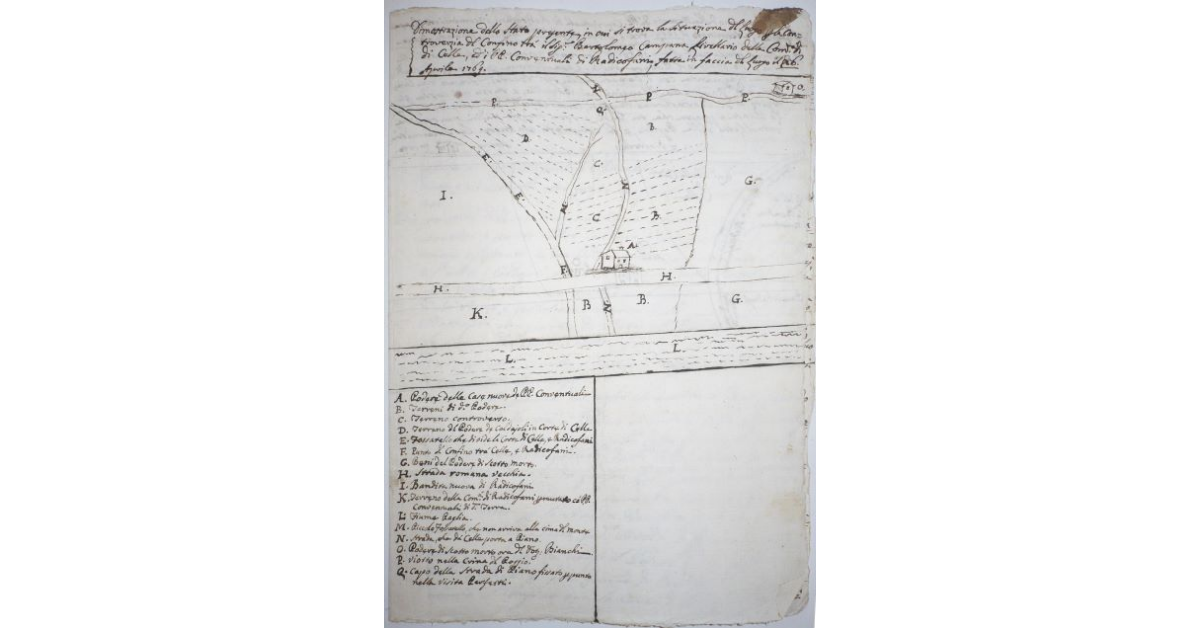 Dimostrazione dello Stato presente, in cui si trova la Situazione del
di Confino tra il Sig.r Bartolomeo Campana livellario della Com.tà di
di Celle, ed i PP. Conventuali di Radicofani, fatta in faccia del
Aprile 1769.
P.
N
P.
P.
O.
Q
D
B.
C.
E.
G.
I.
E.
M
N
C
B.
A.
F.
H.
H.
K.
B
N
B.
G.
L.
L.
A. Podere delle Case nuove de PP. Conventuali
B. Terreni di d.o Podere.
C. Terreno controverso.
D. Terreno del Podere di in Corte di Celle
E. Fossatello che divide la Corte di Celle, e Radicofani
F. di Confino tra Celle, e Radicofani.
G. Beni del Podere di Scotto morto.
H. Strada romana vecchia.
I. Bandita nuova di Radicofani
K. Terreno della Com.tà di Radicofani permutato co PP.
Conventuali di d.a Terra.
L. Fiume Paglia.
M. Piccolo Fossatello, che non arriva alla cima del monte
N. Strada che di Celle porta a Piano.
O. Podere di Scotto morto ora di Bianchi
P. Viotto nella Cima del Poggio.
Q. Capo della Strada di Piano fissato p punto
nella Visita